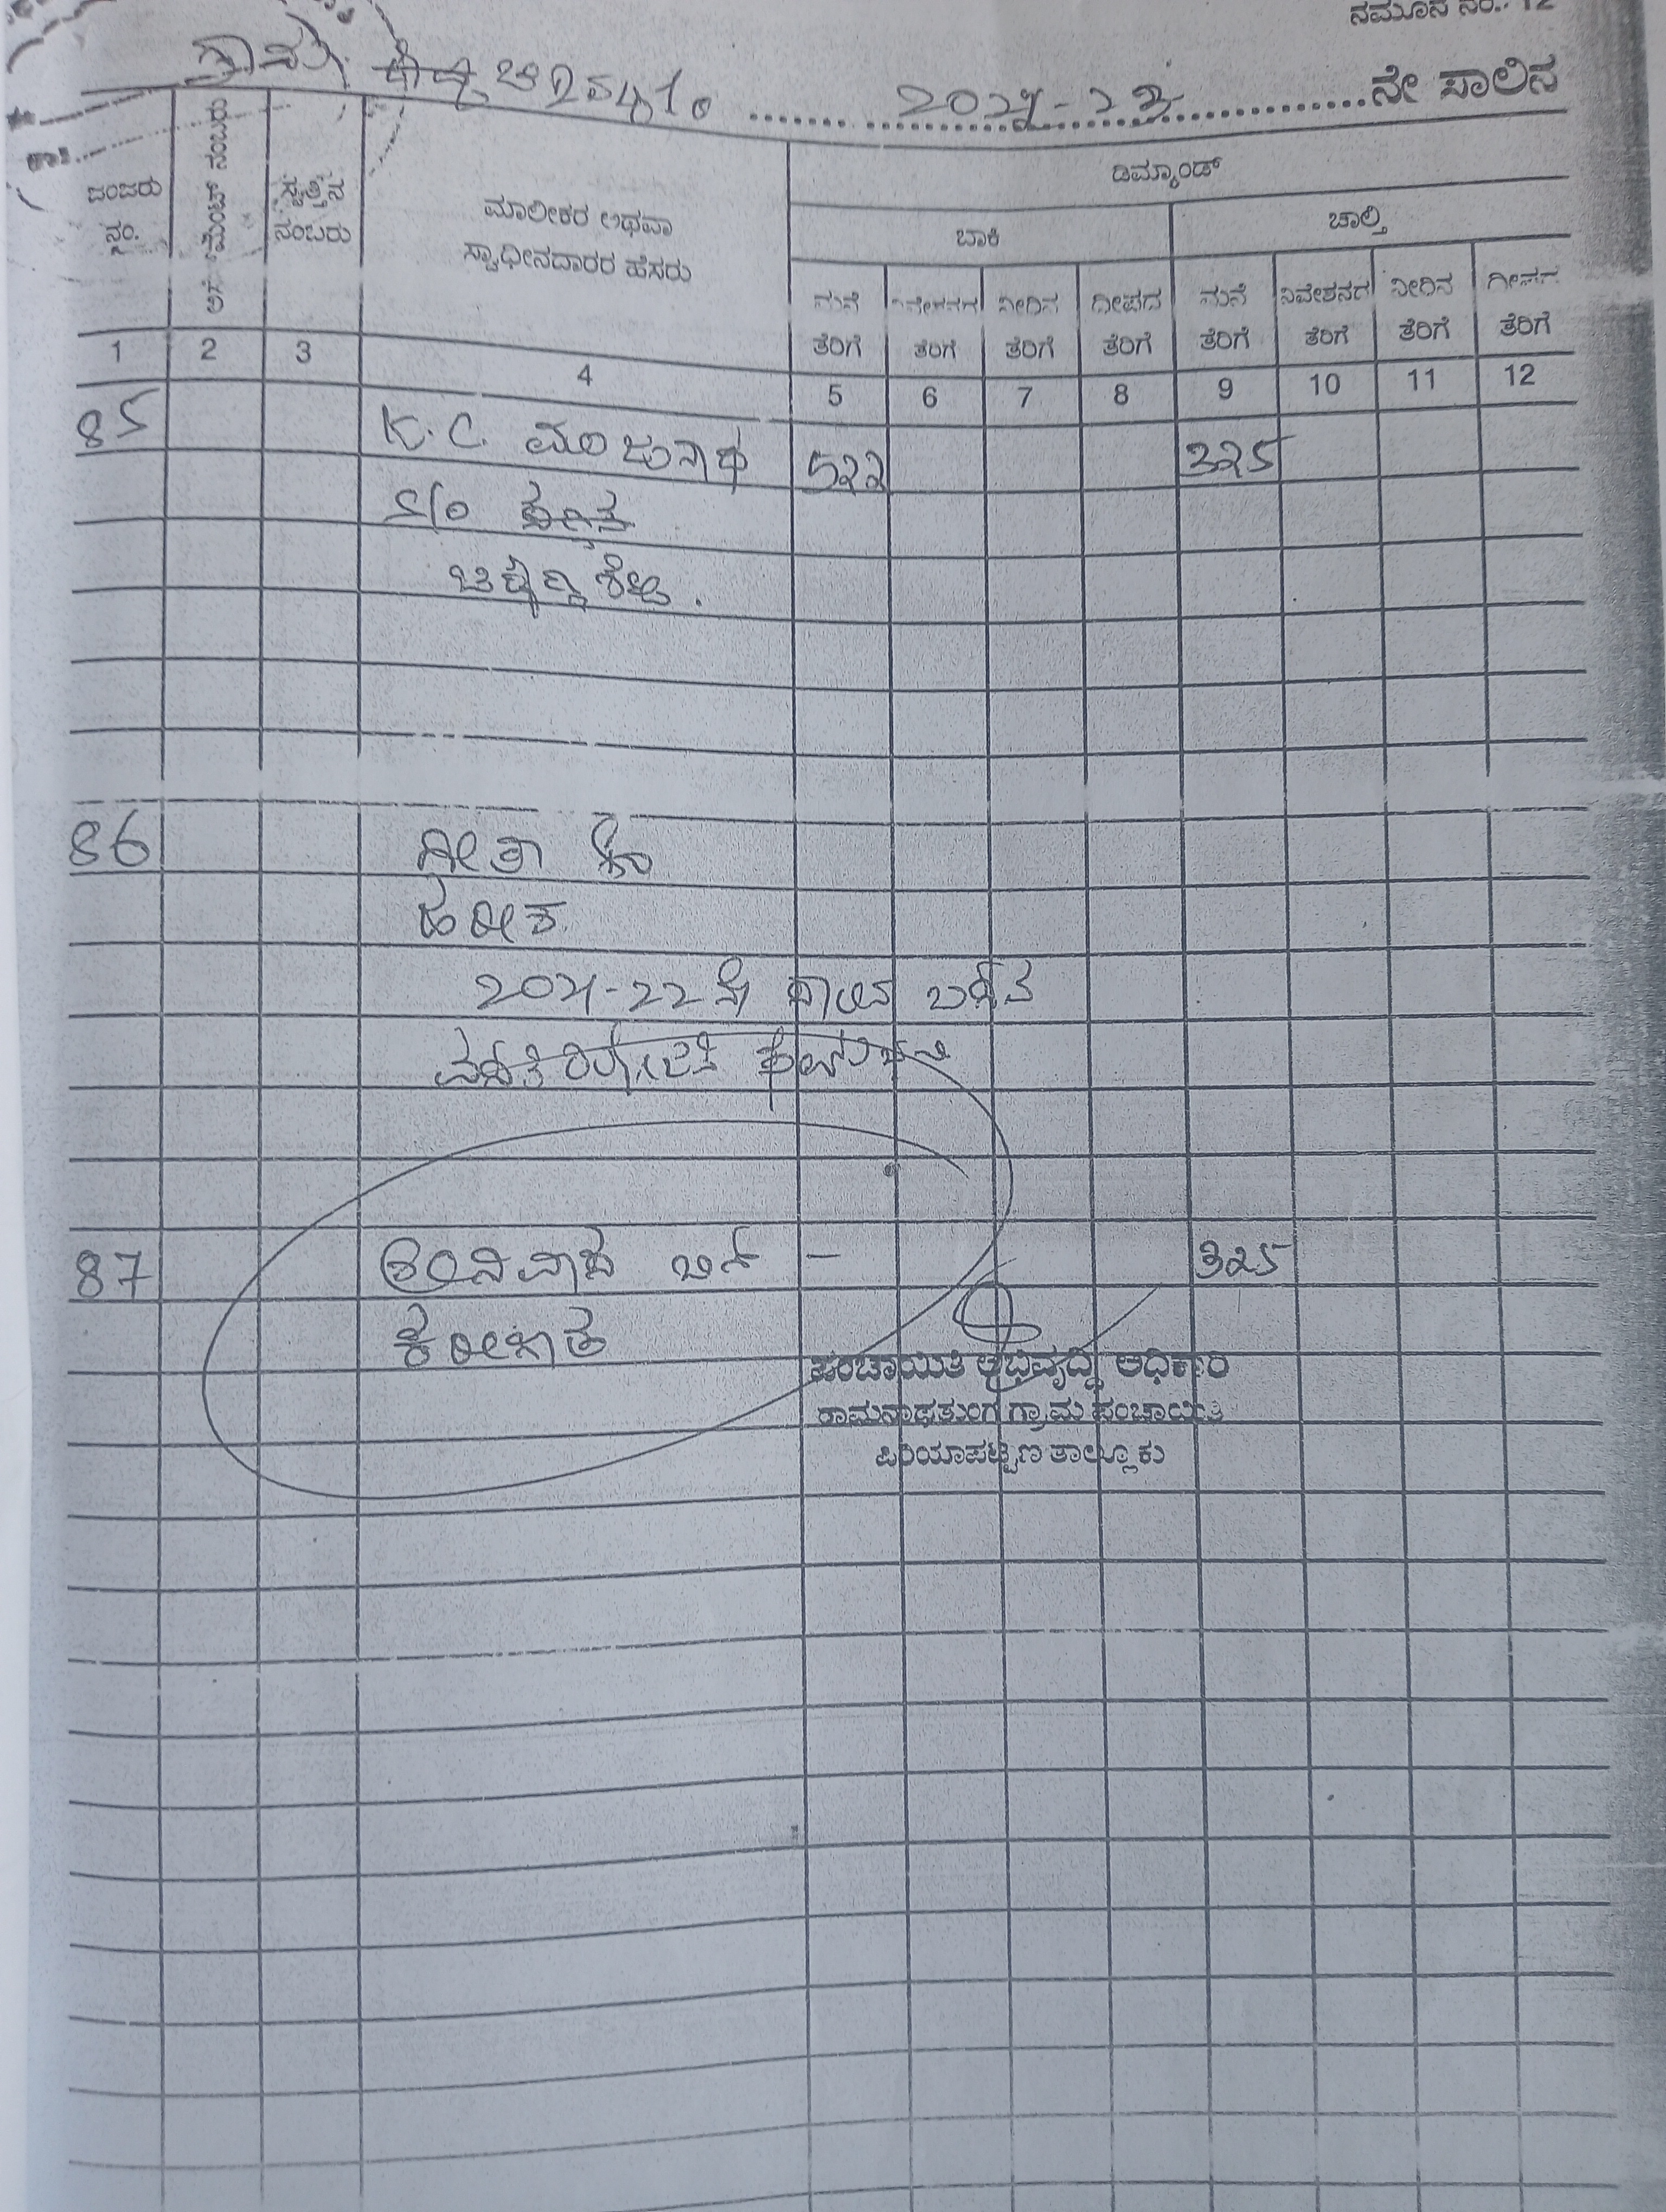 ನಮೂನೆ ನಂ. 12
ಗ್ರಾಮ
ನೇ ಸಾಲಿನ
ಡಿಮ್ಯಾಂಡ್
ಬಾಕಿ ಚಾಲ್ತಿ
ನಂಜರು ನಂ.
ಅಸೆಸ್‌ಮೆಂಟ್ ನಂಬರು
ಸ್ವತ್ತಿನ ನಂಬರು
ಮಾಲೀಕರ ಅಥವಾ
ಸ್ವಾಧೀನದಾರರ ಹೆಸರು
ಮನೆ ನಿವೇಶನದ ನೀರಿನ ದೀಪದ ಮನೆ ನಿವೇಶನದ ನೀರಿನ ದೀಪದ
ತೆರಿಗೆ ತೆರಿಗೆ ತೆರಿಗೆ ತೆರಿಗೆ ತೆರಿಗೆ ತೆರಿಗೆ ತೆರಿಗೆ ತೆರಿಗೆ
1 2 3 4 5 6 7 8 9 10 11 12
85 K.C. ಮಂಜುನಾಥ 522 325
S/o
86 ಗೀತಾ ಕೋಂ
ಹರೀಶ
2021-22ನೇ ಸಾಲಿನ
87 ಶ್ರೀನಿವಾಸ ಬಿನ್ – 325
ಪಂಚಾಯಿತಿ ಅಭಿವೃದ್ಧಿ ಅಧಿಕಾರಿ
ರಾಮನಾಥತುಂಗ ಗ್ರಾಮ ಪಂಚಾಯಿತಿ
ಪಿರಿಯಾಪಟ್ಟಣ ತಾಲ್ಲೂಕು